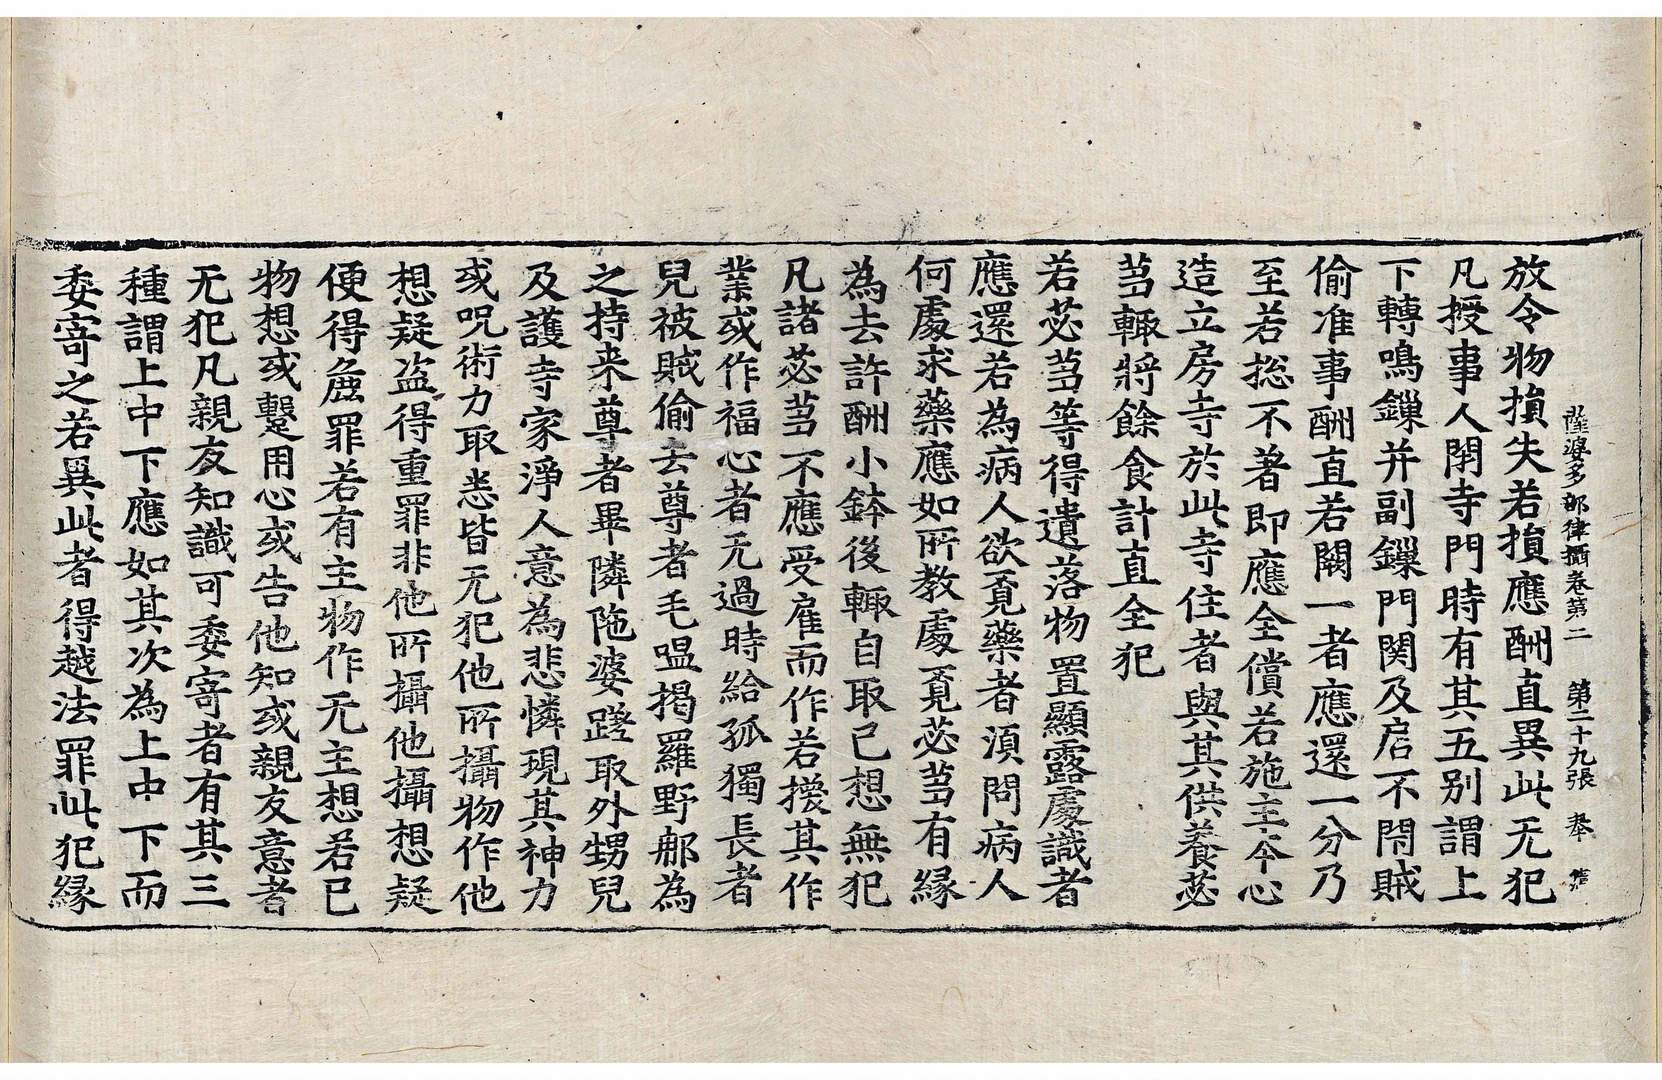 薩婆多部律攝卷第二　第二十九張　奉
放令物損失若損應酬直異此无犯
凡授事人閉寺門時有其五別謂上
下轉鳴鏁并副鏁門関及扂不閇賊
偷准事酬直若闕一者應還一分乃
至若捴不著即應全償若施主本心
造立房寺於此寺住者與其供養苾
芻輙將餘食計直全犯
若苾芻等得遺落物置顯露處識者
應還若為病人欲覔藥者湏問病人
何處求藥應如所教處覔苾芻有緣
為去許酬小鉢後輙自取己想無犯
凡諸苾芻不應受雇而作若授其作
業或作福心者无過時給孤獨長者
兒被賊偷去尊者毛嗢揭羅野那為
之持来尊者畢隣陁婆蹉取外甥兒
及護寺家淨人意為悲憐現其神力
或呪術力取恚皆无犯他所攝物作他
想疑盗得重罪非他所攝他攝想疑
便得麁罪若有主物作无主想若已
物想或蹔用心或告他知或親友意者
无犯凡親友知識可委寄者有其三
種謂上中下應如其次為上中下而
委寄之若異此者得越法罪此犯緣